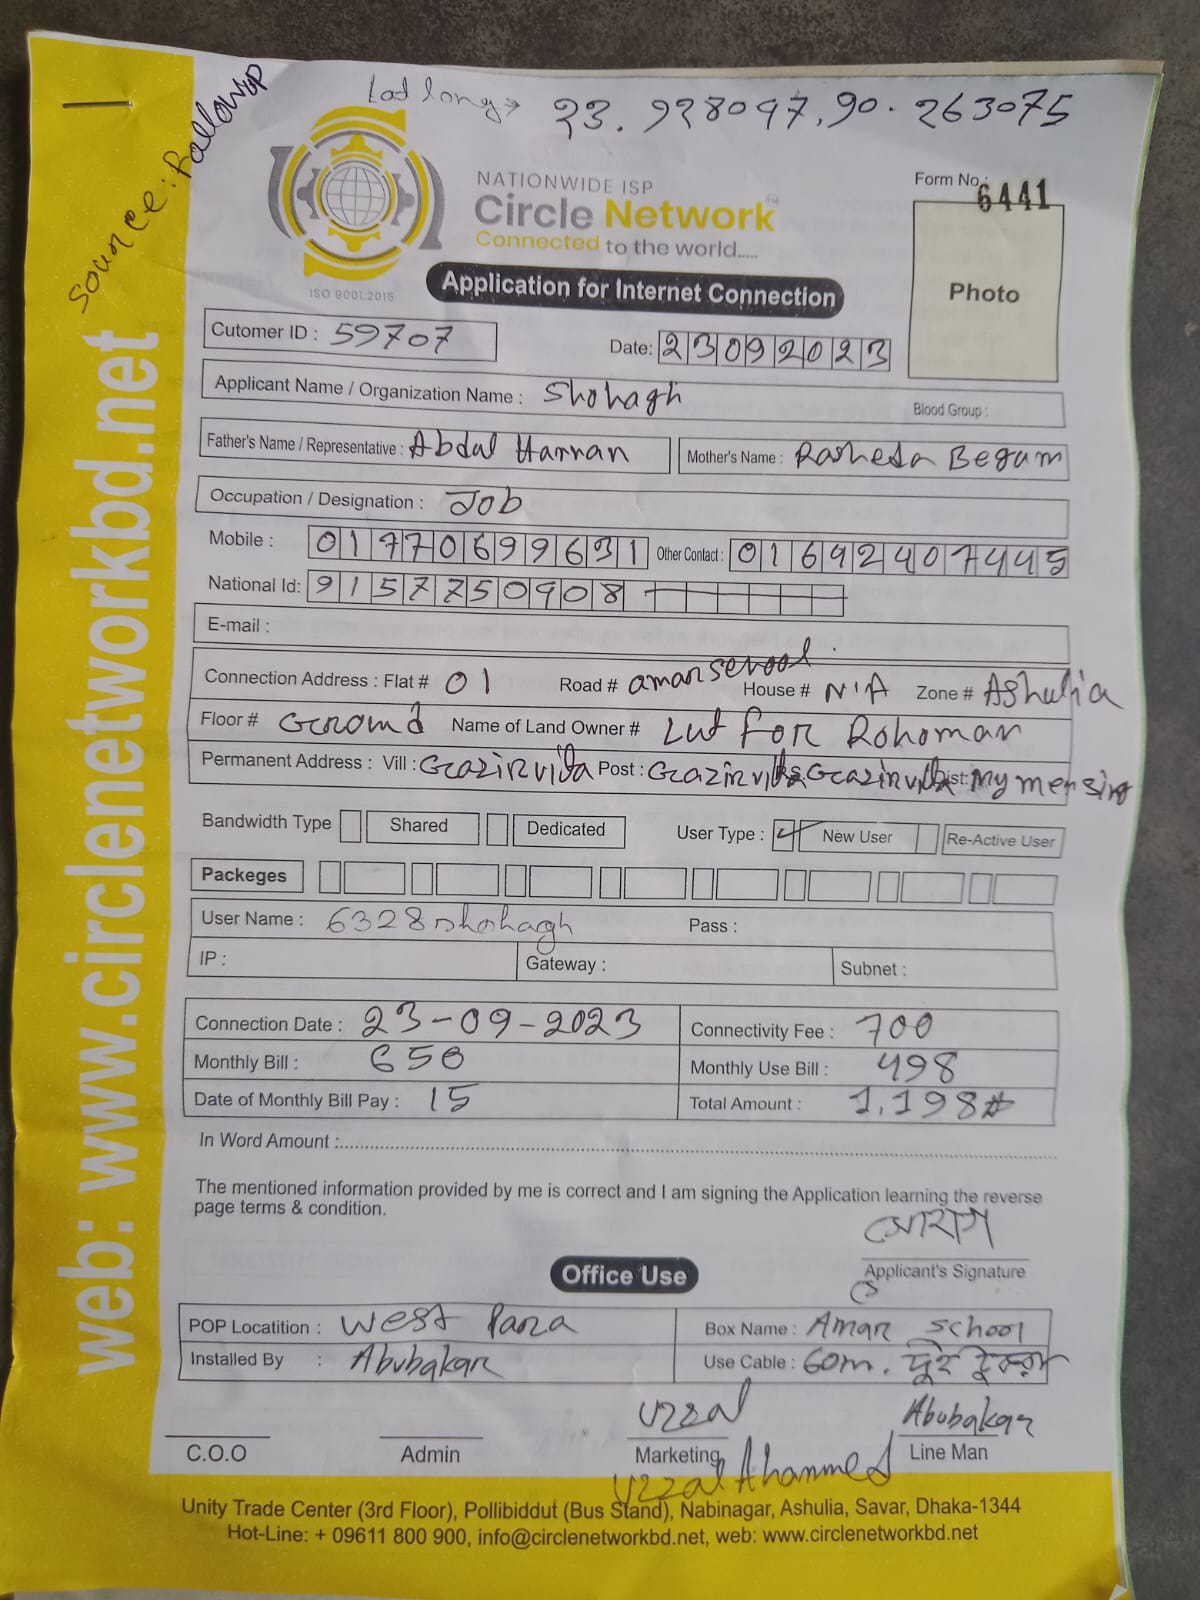 Lad long → 23.928097, 90.263075
Source: Rallowup
NATIONWIDE ISP
Circle Network™
Connected to the world.....
ISO 9001:2015
Form No.: 6441
Photo
Application for Internet Connection
Cutomer ID : 59707
Date: 23092023
Applicant Name / Organization Name : Shohagh
Blood Group :
Father's Name / Representative : Abdal Hannan Mother's Name : Rasheda Begum
Occupation / Designation : Job
Mobile : 01770699631 Other Contact : 01692407445
National Id: 9157750908
E-mail :
Connection Address : Flat # 01 Road # aman school House # N'A Zone # Ashulia
Floor # Ground Name of Land Owner # Lut for Rohoman
Permanent Address : Vill : Post : Dist: My mensing
Bandwidth Type Shared Dedicated User Type : New User Re-Active User
Packeges
User Name : 6328shohagh Pass :
IP : Gateway : Subnet :
Connection Date : 23-09-2023 Connectivity Fee : 700
Monthly Bill : 650 Monthly Use Bill : 498
Date of Monthly Bill Pay : 15 Total Amount : 1,198#
In Word Amount :
The mentioned information provided by me is correct and I am signing the Application learning the reverse
page terms & condition.
সোহাগ
Applicant's Signature
Office Use
POP Locatition : West Para Box Name : Aman school
Installed By : Abubakar Use Cable : 60m. দুই টুকরা
Uzzal Abubakar
C.O.O Admin Marketing Line Man
Uzzal Ahammed
Unity Trade Center (3rd Floor), Pollibiddut (Bus Stand), Nabinagar, Ashulia, Savar, Dhaka-1344
Hot-Line: + 09611 800 900, info@circlenetworkbd.net, web: www.circlenetworkbd.net
web: www.circlenetworkbd.net